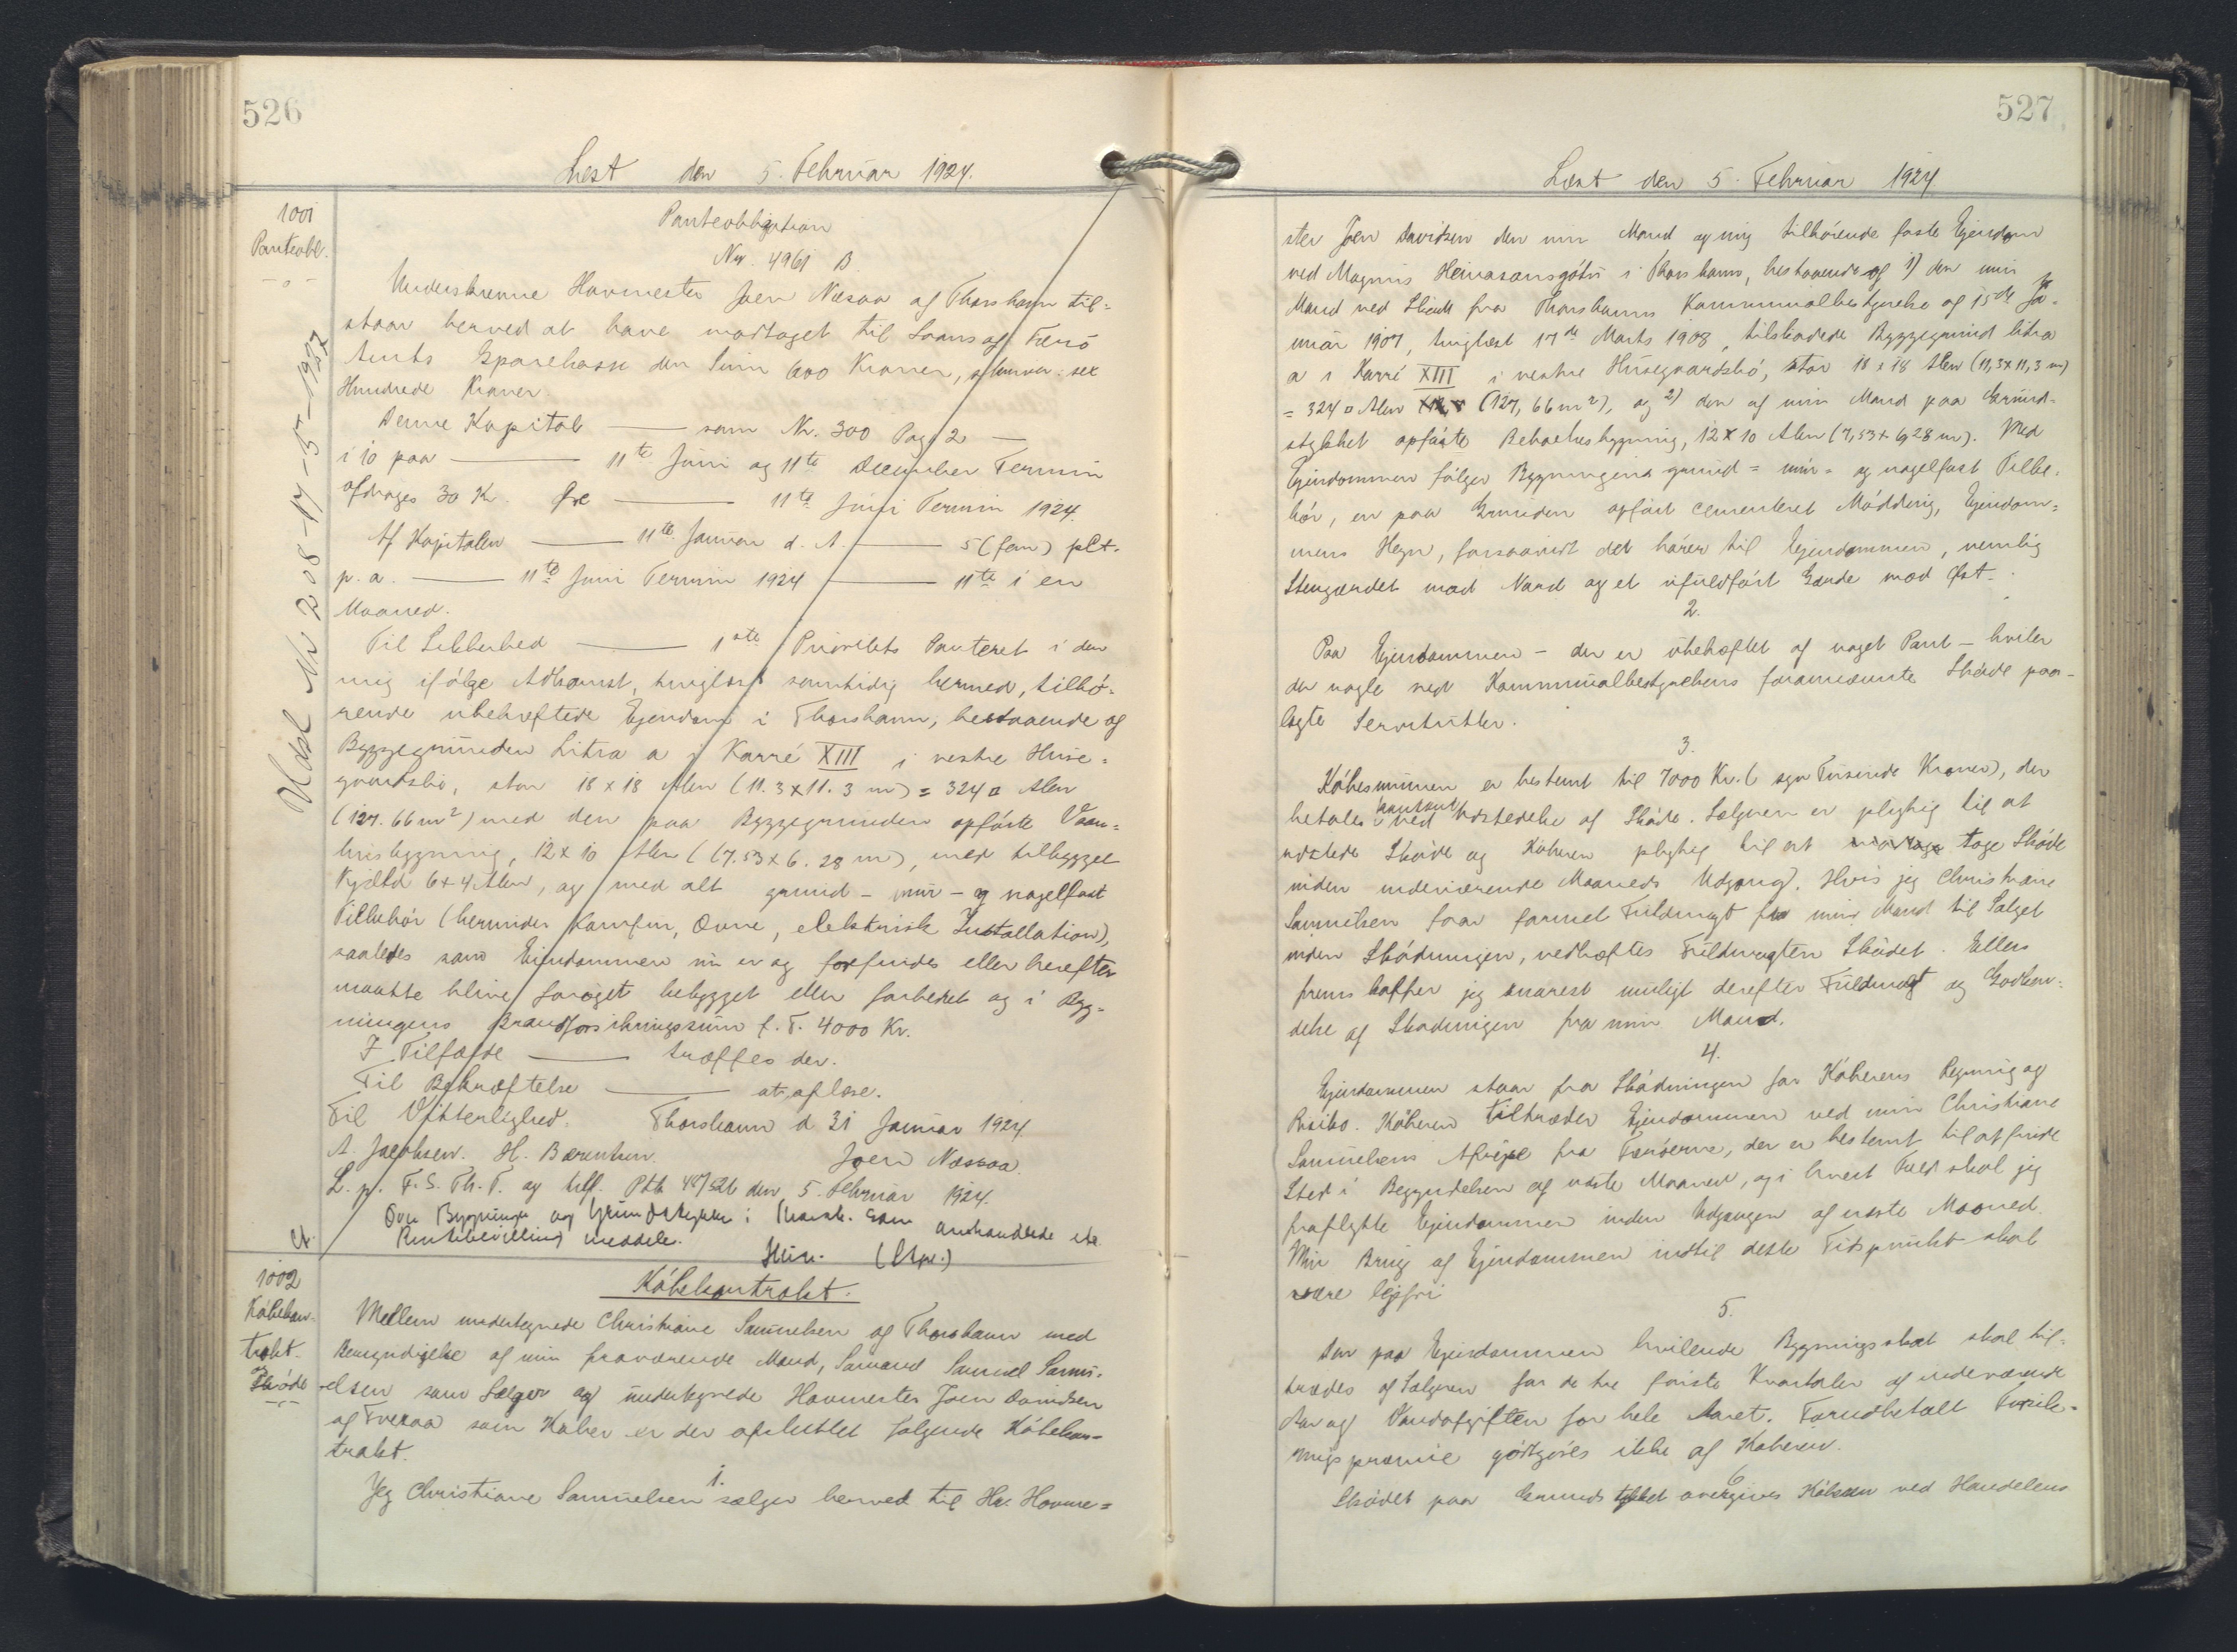 526
Læst den 5. Februar 1924.
1001
Panteobl.
Udsl Nr 208-17-5-1927
Panteobligation
Nr. 4961 B.
Underskrevne Havnester Joen Næsaa af Thorshavn til=
staar herved at have modtaget til Laans af Færø
Amts Sparekasse den Sum 600 Kroner, skriver: sex
Hundrede Kroner.
Denne Kapital — som Nr. 300 Pag 2 —
i 10 paa — 11te Juni og 11te December Termin
afdrages 30 Kr. Øre — 11te Juni Termin 1924.
Af Kapitalen — 11te Januar d. A. — 5 (fem) pCt.
p. a. — 11te Juni Termin 1924 — 11te i en
Maaned.
Til Sikkerhed — 1ste Prioritets Panteret i den
mig ifølge Adkomst, tinglæst samtidig hermed, tilhø=
rende ubehæftede Ejendom i Thorshavn, bestaaende af
Byggegrunden Litra a i Karré XIII i vestre Huse=
gaardsbø, stor 18 x 18 Alen (11.3 x 11.3 m) = 324 □ Alen
(127.66 m²) med den paa Byggegrunden opførte Vaan=
husbygning, 12 x 10 Alen ((7.53 x 6.28 m), med tilbygget
Kjæld 6 x 4 Alen, og med alt grund- mur- og nagelfast
Tilbehør (herunder Komfur, Ovne, elektrisk Installation),
saaledes som Ejendommen nu er og forefindes eller herefter
maatte blive forøget bebygget eller forbedret og i Byg=
ningens Brandforsikringssum f. T. 4000 Kr.
I Tilfælde — træffes der.
Til Bekræftelse — at aflæse.
Til Vitterlighed: Thorshavn d 31 Januar 1924.
A. Jacobsen. H. Bærentsen. Joen Næssaa.
L. p. F. S. Th. T. og tilf. Ptb 4 7/526 den 5. Februar 1924.
Ovn Bygninge og Grundstykke i Thorsh. som omhandlede
Rentebevilling meddelt.
Ct.
1002
Købekon=
trakt.
og
Skøde
Købekontrakt.
Mellem undertegnede Christiane Samuelsen af Thorshavn med
Bemyndigelse af min fraværende Mand, Sømand Samuel Samu=
elsen som Sælger og undertegnede Havnester Joen Davidsen
af Tveraa som Køber er der afsluttet følgende Købekon=
trakt.
1.
Jeg Christiane Samuelsen sælger herved til Hr. Havne=
527
Læst den 5. Februar 1924.
ster Joen Davidsen den min Mand og mig tilhørende faste Ejendom
ved Magnus Heinasonsgøtu i Thorshavn, bestaaende af 1) den min
Mand ved Skøde fra Thorshavns Kommunalbestyrelse af 15de Ja=
nuar 1907, tinglæst 17de Marts 1908, tilskødede Byggegrund litra
a i Karré XIII i vestre Husegaardsbø, stor 18 x 18 Alen (11,3 x 11,3 m)
= 324 □ Alen (127,66 m²), og 2) den af min Mand paa Grund=
stykket opførte Beboelsesbygning, 12 x 10 Alen (7,53 x 6,28 m). Med
Ejendommen følger Bygningens grund= mur= og nagelfast Tilbe=
hør, en paa Grunden opført cementeret Mødding, Ejendom=
mens Hegn, forsaavidt det hører til Ejendommen, nemlig
Stengærdet mod Nord og et ufuldført Gærde mod Øst.
2.
Paa Ejendommen - der er ubehæftet af noget Pant - hviler
der nogle ved Kommunalbestyrelsens forannævnte Skøde paa=
lagte Servitutter.
3.
Købesummen er bestemt til 7000 Kr. (syv Tusinde Kroner), der
betales kontant ved Udstedelse af Skøde. Sælgeren er pligtig til at
udstede Skøde og Køberen pligtig til at tage Skøde
inden indeværende Maaneds Udgang. Hvis jeg Christiane
Samuelsen faar formel Fuldmagt fra min Mand til Salget
inden Skødningen, vedhæftes Fuldmagten Skødet. Ellers
fremskaffer jeg snarest muligt derefter Fuldmagt og Godken=
delse af Skødningen fra min Mand.
4.
Ejendommen staar fra Skødningen for Køberens Regning og
Risiko. Køberen tiltræder Ejendommen ved min Christiane
Samuelsens Afrejse fra Færøerne, der er bestemt til at finde
Sted i Begyndelsen af næste Maaned, og i hvert Fald skal jeg
fraflytte Ejendommen inden Udgangen af næste Maaned.
Min Brug af Ejendommen indtil dette Tidspunkt skal
være lejefri.
5.
Den paa Ejendommen hvilende Bygningsskat skal til=
trædes af Sælgeren for de tre første Kvartaler af indeværende
Aar og Vandafgiften for hele Aaret. Forudbetalt Forsik=
ringspræmie godtgøres ikke af Køberen.
6.
Skødet paa Grundstykket overgives Køberen ved Handelens